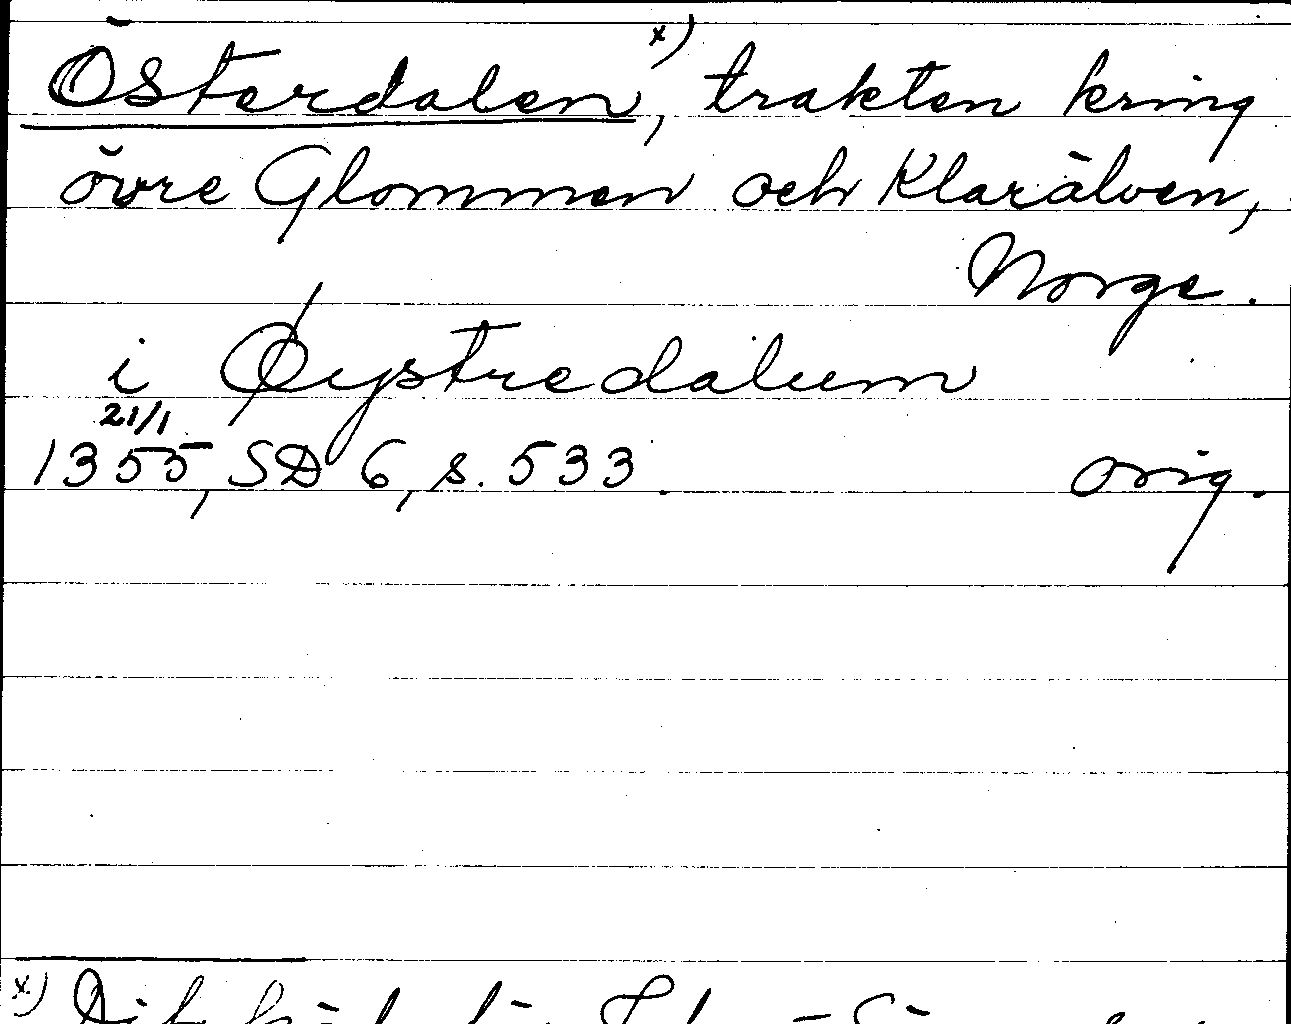 Österdalen,x) trakten kring
övre Glommen och Klarälven,
Norge.
i Øystredalum
21/1
1355, SD 6, s. 533. orig.
x)